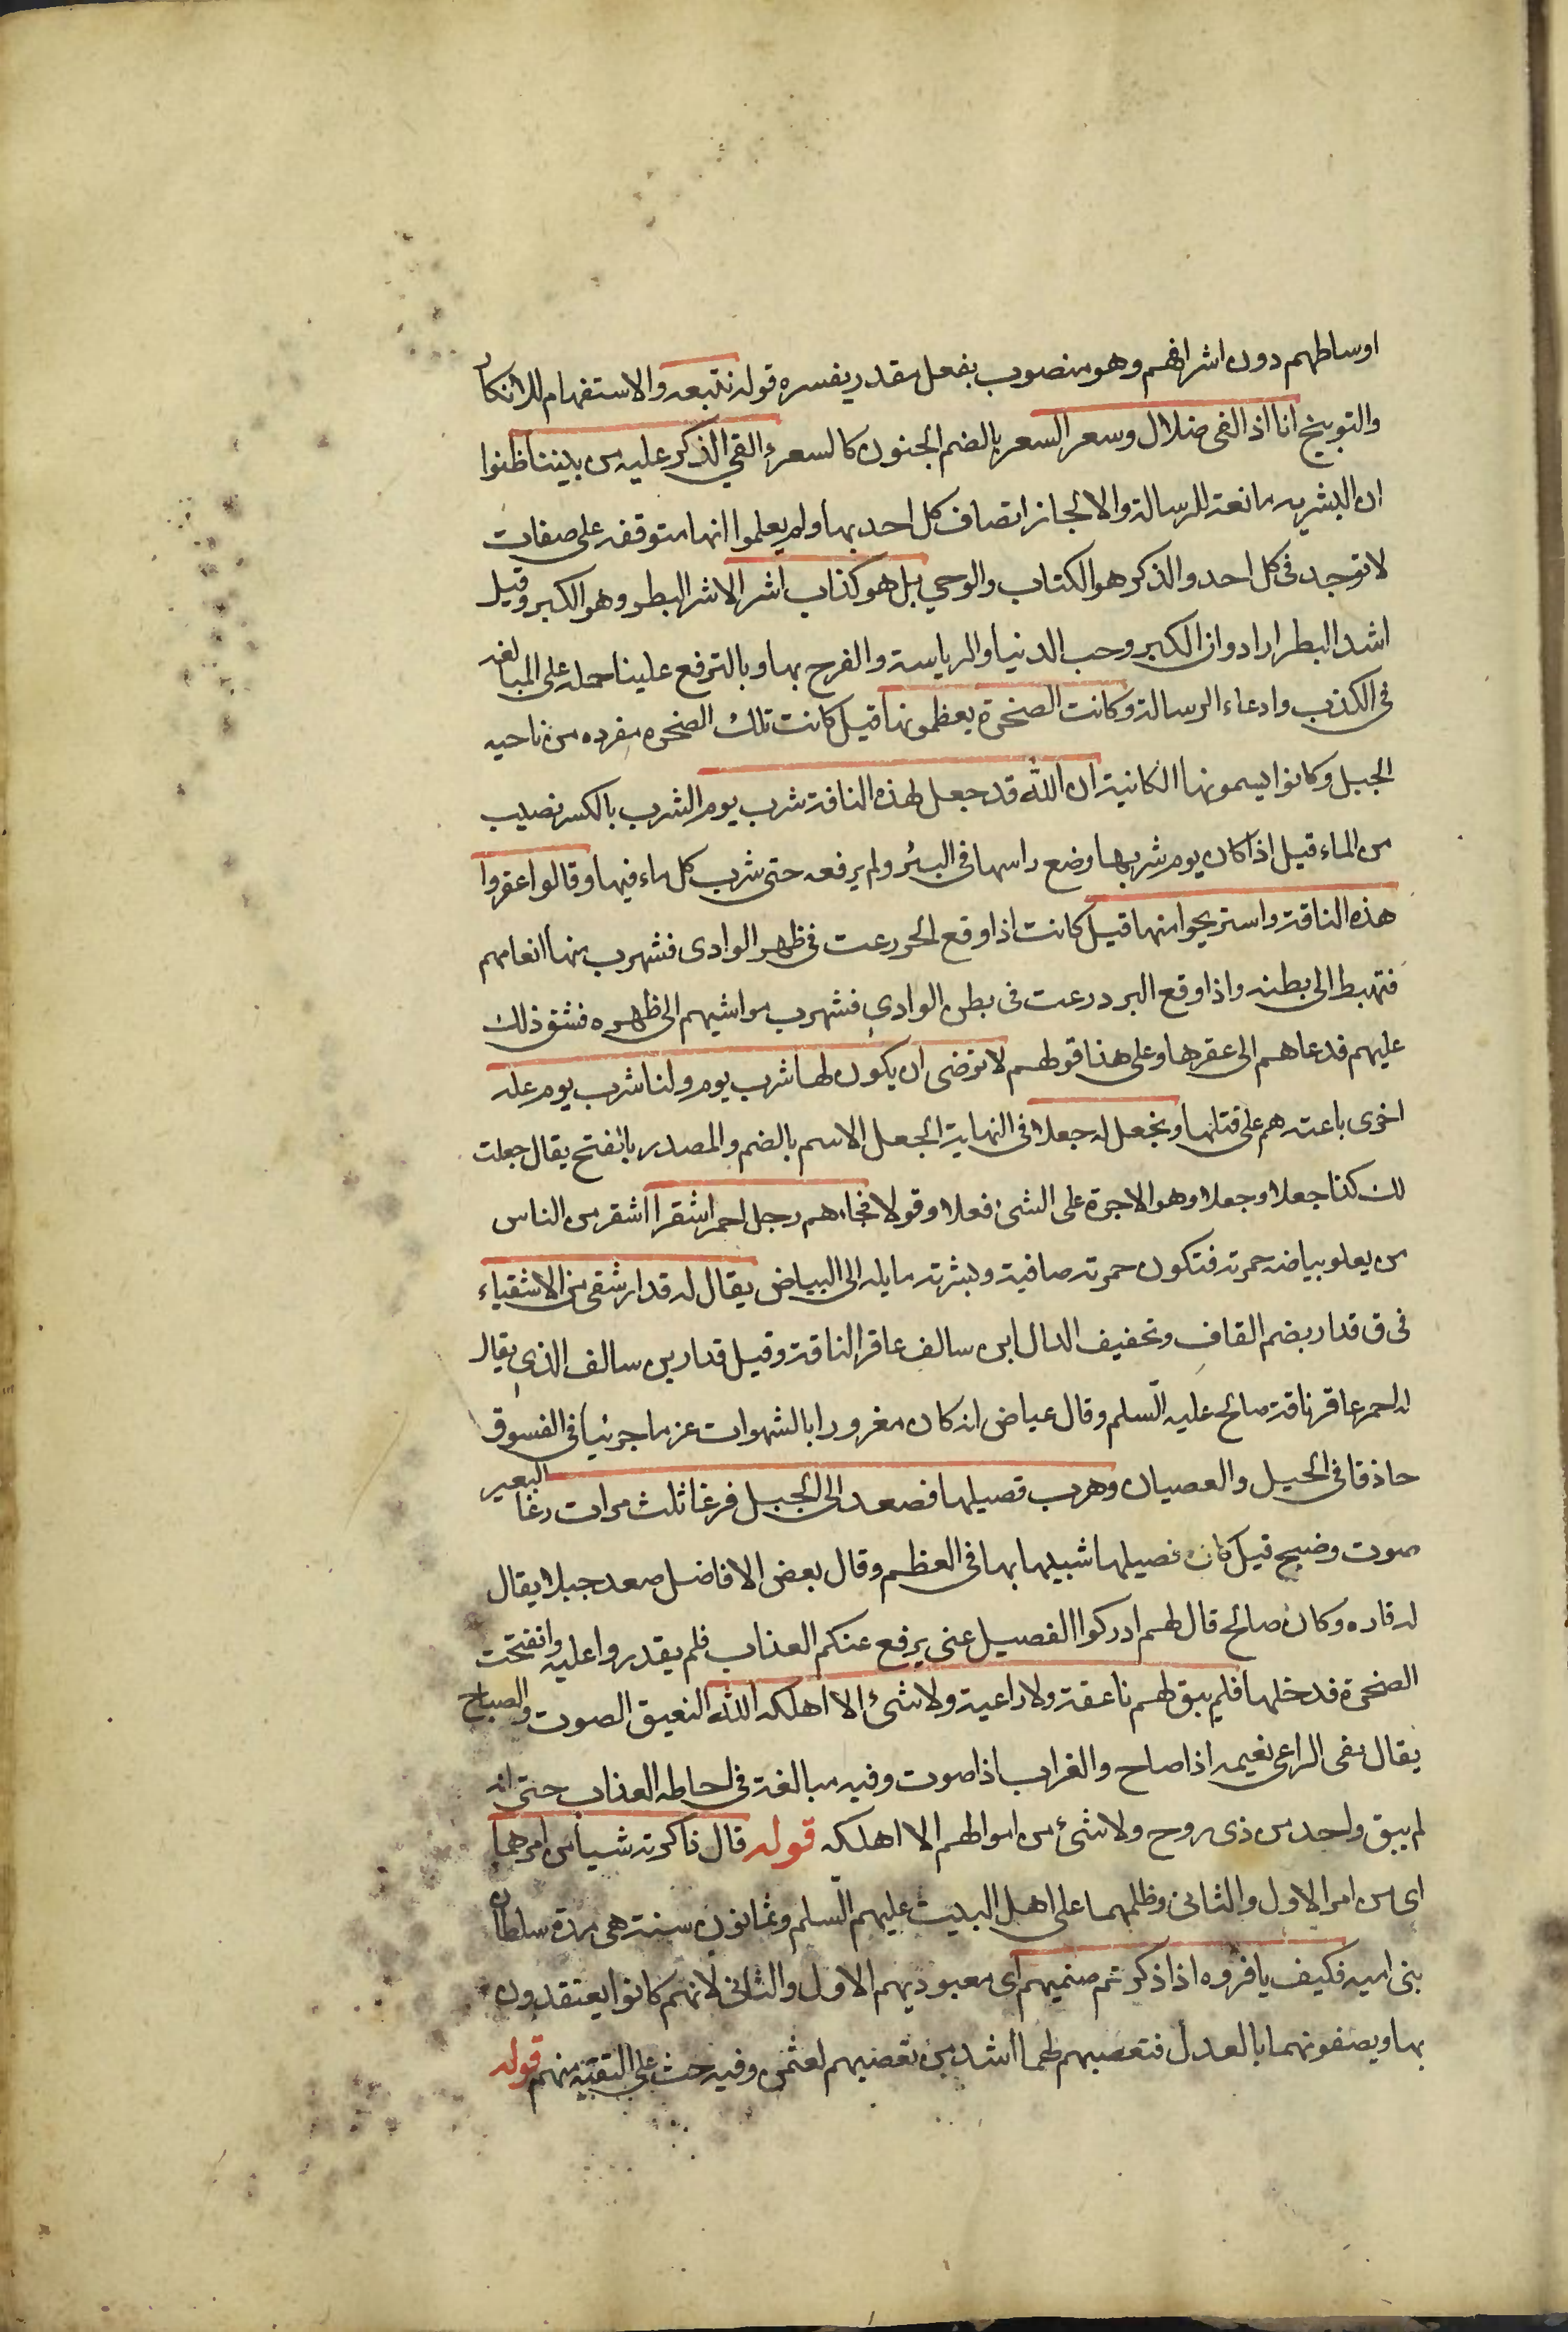 اوساطهم دون اشرافهم وهو منصوب بفعل مقدر يفسره قوله نتبعه والاستفهام للانكار
والتوبيخ انا اذا لفى ضلال وسعر السعر بالضم الجنون كالسعرء القي الذكر عليه من بيننا ظنوا
ان البشريه مانعة للرسالة والا لجاز اتصاف كل احد بها ولم يعلموا انها متوقفه على صفات
لا توجد فى كل احد والذكر هو الكتاب والوحي بل هو كذاب اشر الاشر البطر وهو الكبر وقيل
اشد البطر ارادوا ان الكبر وحب الدنيا والرياسة والفرح بها وبالترفع علينا حمله على المبالغه
فى الكذب وادعاء الرسالة وكانت الصخرة يعظمونها قيل كانت تلك الصخره مفرده من ناحيه
الجبل وكانوا يسمونها الكانية ان الله قد جعل لهذه الناقة شرب يوم الشرب بالكسر نصيب
من الماء قيل اذا كان يوم شربها وضع راسها فى البئر ولم يرفعه حتى شرب كل ماء فيها وقالوا اعقروا
هذه الناقة واستريحوا منها قيل كانت اذا وقع الحر رعت فى ظهر الوادى فشهرب منها انعامهم
فتهبط الى بطنه واذا وقع البرد رعت فى بطن الوادى فشهرب مواشيهم الى ظهره فشق ذلك
عليهم فدعاهم الى عقرها وعلى هذا قولهم لا نرضى ان يكون لها شرب يوم ولنا شرب يوم عله
اخرى باعته هم على قتلها ونجعل له جعلا فى النهاية الجعل الاسم بالضم والمصدر بالفتح يقال جعلت
لك كذا جعلا وجعلا وهو الاجرة على الشئ فعلا وقولا فجاءهم رجل احمر اشقر اا شقر من الناس
من يعلو بياضه حمرة فتكون حمرته صافية وبشرته مايله الى البياض يقال له قدار شقى من الاشقياء
فى ق قدار بضم القاف وتخفيف الدال ابن سالف عاقر الناقة وقيل قدار بن سالف الذى يقال
له احمر عاقر ناقة صالح عليه السلم وقال عياض انه كان مغرورا بالشهوات عزما جرئيا فى الفسوق
حاذقا فى الحيل والعصيان وهرب فصيلها فصعد الى الجبل فرغا ثلث مرات رغا البعير
صوت وضبح قيل كان فصيلها شبيها بها فى العظم وقال بعض الافاضل صعد جبلا يقال
له قاره وكان صالح قال لهم ادركوا الفصيل عنى يرفع عنكم العذاب فلم يقدروا عليه وانفتحت
الصخرة فدخلها فلم يبق لهم ناعقة ولا راعية ولا شئ الا اهلكه الله النعيق الصوت والصياح
يقال نعى الراعى نغيمه اذا صاح والغراب اذا صوت وفيه مبالغة فى احاطه العذاب حتى انه
لم يبق واحد من ذى روح ولا شئ من اموالهم الا اهلكه قوله قال ذاكرته شيأ من امرهما
اى من امر الاول والثانى وظلمهما على اهل البيت عليهم السلم وثمانون سنة هى مدة سلطان
بنى اميه فكيف يا فروه اذا ذكرتم صنميهم اى معبوديهم الاول والثانى لانهم كانوا يعتقدون
بها ويصفونهما بالعدل فتعصبهم لهما اشد من تعصبهم لعثمن وفيه حث على التقيه منهم قوله